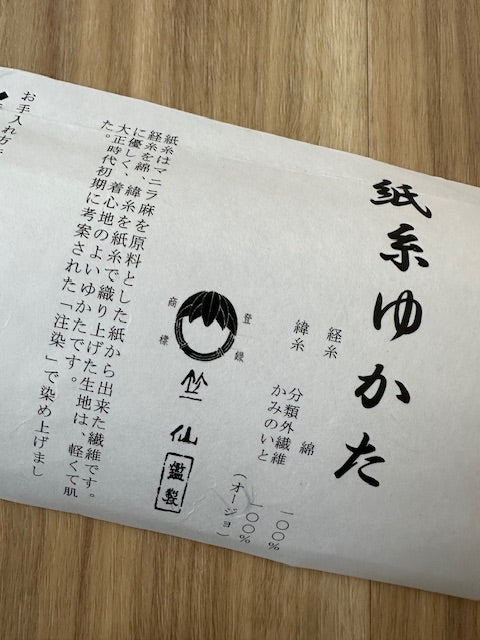 紙糸ゆかた
経糸 綿 一〇〇%
緯糸 分類外繊維 一〇〇%
かみのいと (オージョ)
登録
商標
竺仙
鑑製
紙糸はマニラ麻を原料とした紙から出来た繊維です。
経糸を綿、緯糸を紙糸で織り上げた生地は、軽くて肌
に優しく、着心地のよいゆかたです。
大正時代初期に考案された「注染」で染め上げまし
た。
お手入れ方